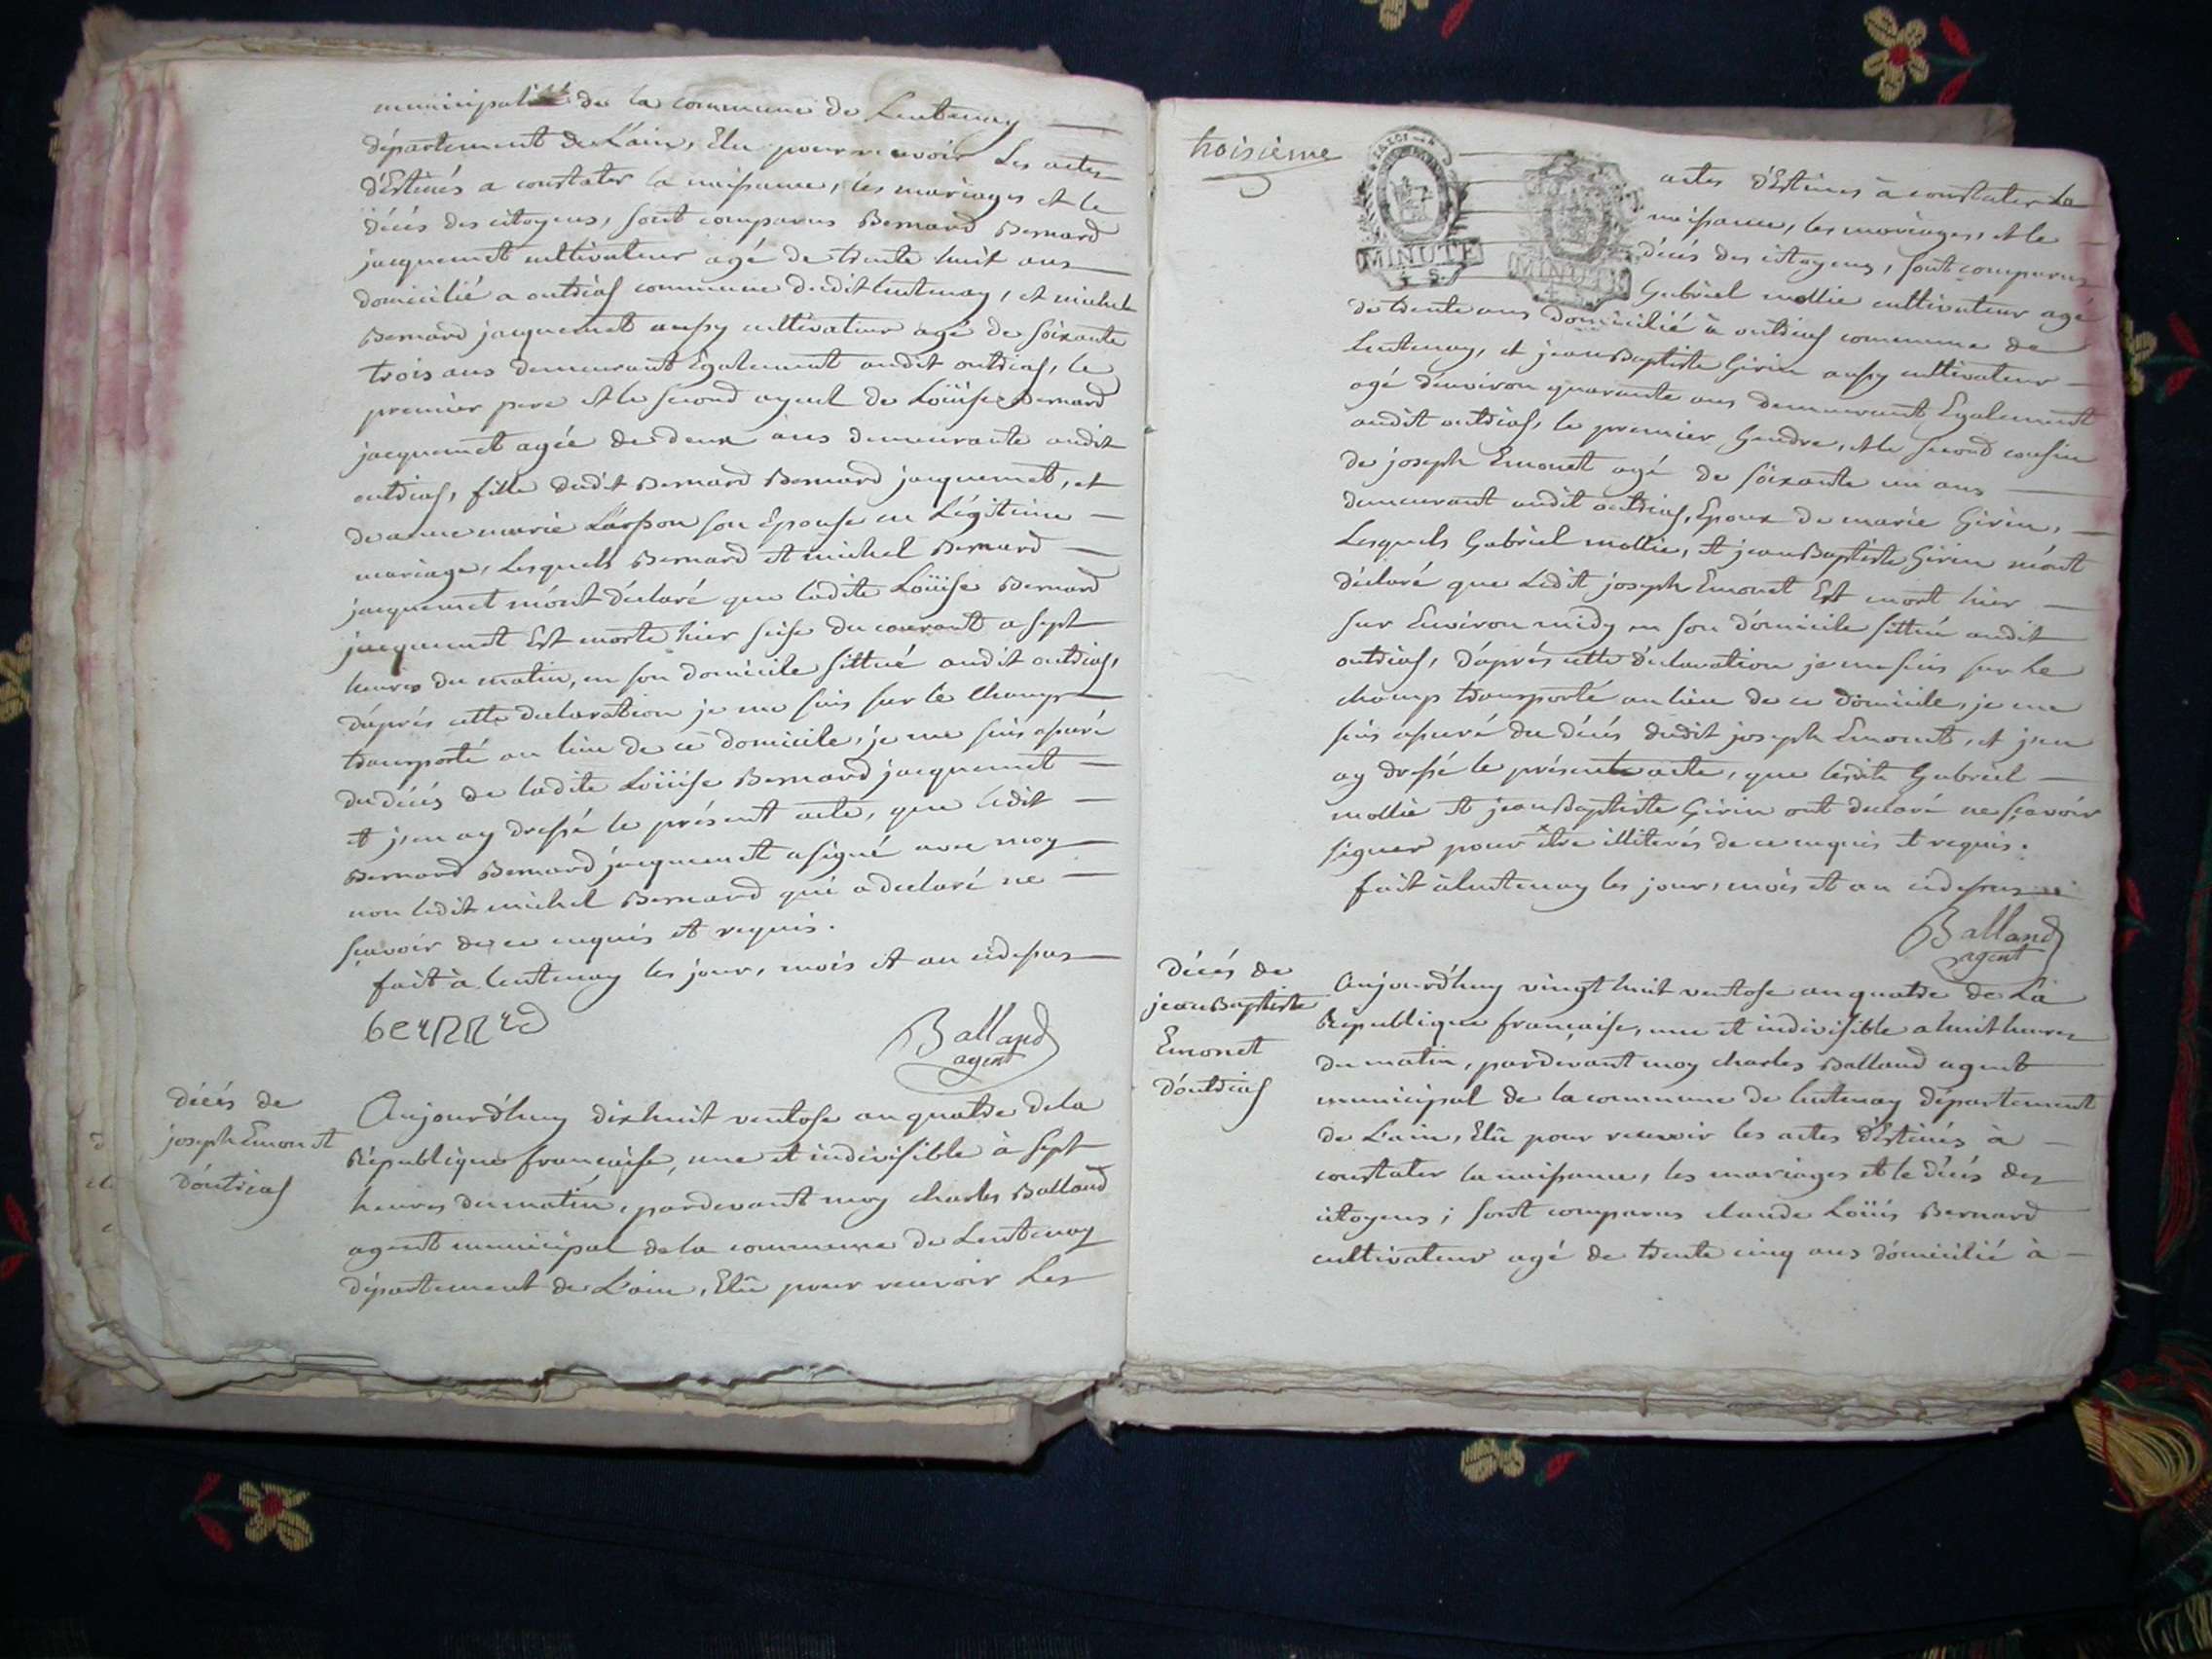 municipalité de la commune de Lentenay
département de L'ain, Elu pour recevoir Les actes
d'Estinés a constater la naissance, les mariages et le
décés des citoyens, sont comparus Bernard Bernard
jacquemet cultivateur agé de trente huit ans
domicilié a outrias commune dudit lentenay, et michel
Bernard jacquemet aussy cultivateur agé de soixante
trois ans demeurant Egalement audit outrias, le
premier pere et le second ayeul de Loüise Bernard
jacquemet agée de deux ans demeurante audit
outrias, fille dudit Bernard Bernard jacquemet, et
de anne marie son Epouse en Légitime
mariage, Lesquels Bernard et michel Bernard
jacquemet m'ont déclaré que ladite Loüise Bernard
jacquemet Est morte hier seise du courant a sept
heures du matin, en son domicile sittué audit outrias,
d'après cette declaration je me suis sur le champ
transporté au lieu de ce domicile, je me suis assuré
du décés de ladite Loüise Bernard jacquemet
et j'en ay dressé le présent acte, que ledit
Bernard Bernard jacquemet a signé avec moy
non ledit michel Bernard qui a declaré ne
sçavoir de ce enquis et requis.
fait à lentenay les jour, mois et an cidessus
Balland
agent
décés de
joseph Emonet
d'outrias
Aujourd'huy dixhuit ventose an quatre dela
République française, une et indivisible à sept
heures du matin, pardevant moy charles Balland
agent municipal dela commune de Lentenay
département de L'ain, Elû pour recevoir Les
troisième
MINUTE
MINUTE
actes d'Estinés à constater La
naissance, les mariages, et le
décés des citoyens, sont comparus
Gabriel mollie cultivateur agé
de trente ans domicilié à outrias commune de
Lentenay, et jean Baptiste Girin aussy cultivateur
agé d'environ quarante ans demeurant Egalement
audit outrias, le premier Gendre, et le second cousin
de joseph Emonet agé de soixante un ans
demeurant audit outrias, Epoux de marie Girin,
Lesquels Gabriel mollie, et jean Baptiste Girin m'ont
déclaré que Ledit joseph Emonet Est mort hier
sur Environ midy en son domicile sittué audit
outrias, d'après cette déclaration je me suis sur Le
champ transporté au lieu de ce domicile, je me
suis assuré du décés dudit joseph Emonet, et j'en
ay dressé le présent acte, que lesdits Gabriel
mollie et jean Baptiste Girin ont declaré ne sçavoir
signer pour être illiterés de ce enquis et requis.
fait à lentenay les jour, mois et an cidessus
Balland
agent
décés de
jean Baptiste
Emonet
d'outrias
Aujourd'huy vingt huit ventose an quatre de La
République française, une et indivisible a huit heures
du matin, pardevant moy charles Balland agent
municipal de la commune de lentenay département
de L'ain, Elû pour recevoir les actes d'Estinés à
constater la naissance, les mariages et le décés des
citoyens; sont comparus claude Loüis Bernard
cultivateur agé de trente cinq ans domicilié à